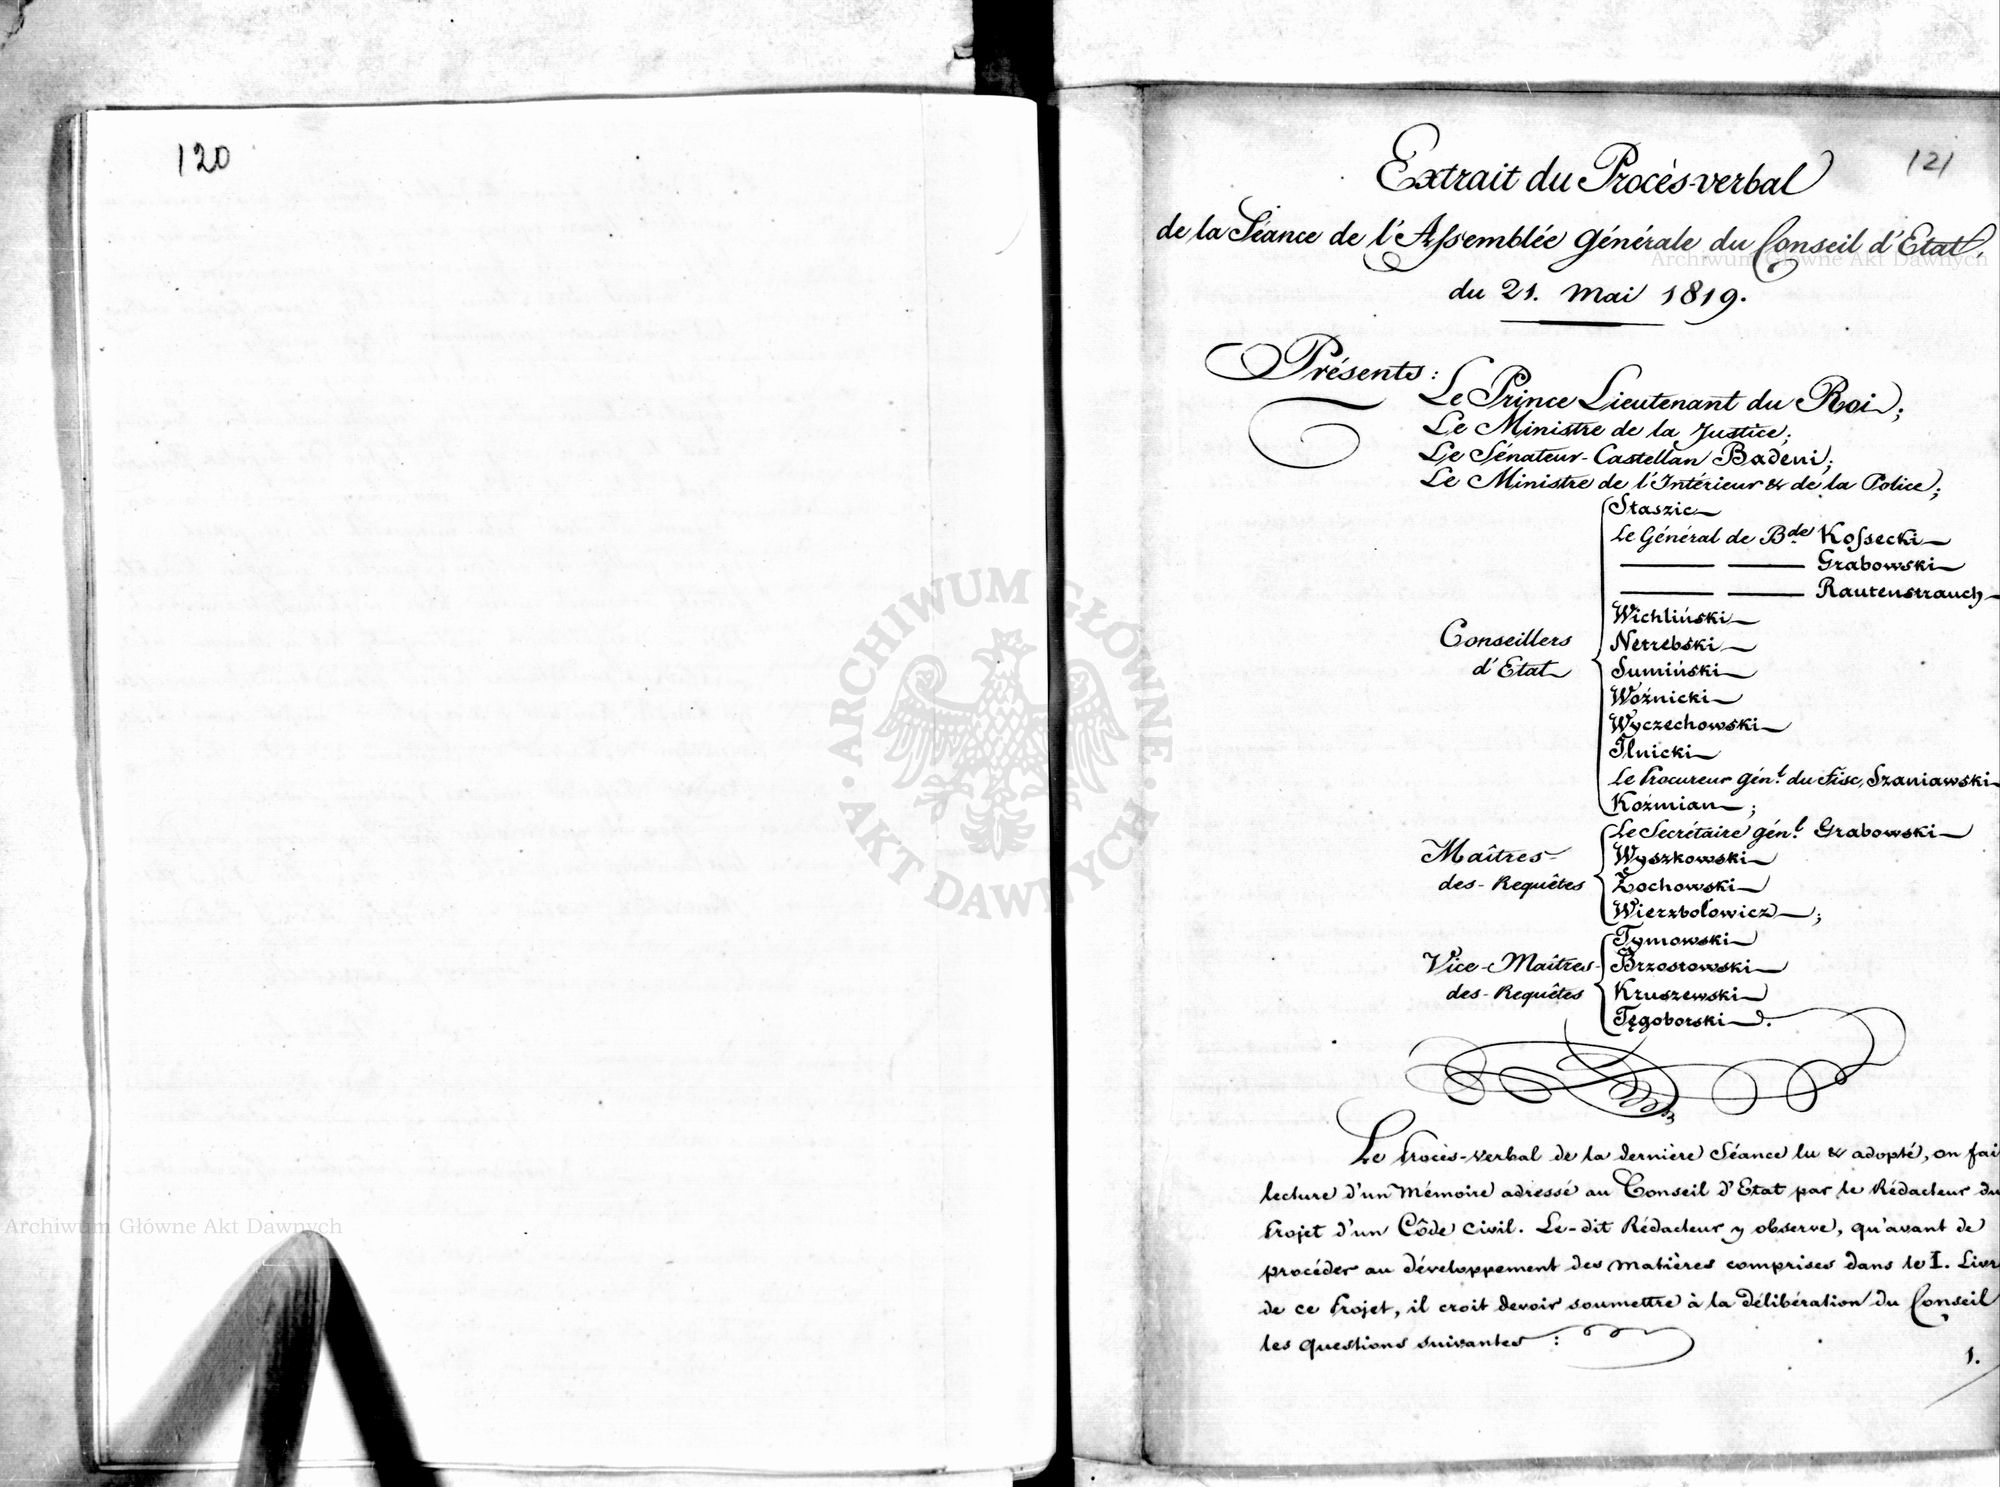 120
121
Extrait du Procès-verbal
de la Séance de l'Assemblée Générale du Conseil d'Etat,
du 21. Mai 1819.
Présents:
Le Prince Lieutenant du Roi;
Le Ministre de la Justice;
Le Sénateur-Castellan Badeni;
Le Ministre de l'Intérieur & de la Police;
Conseillers
d'Etat
Staszic
le Général de Bde Kossecki
Grabowski
Rautenstrauch
Wichliński
Netrebski
Sumiński
Woźnicki
Wyczechowski
Ilnicki
le Procureur génl. du Fisc, Szaniawski
Koźmian;
Maîtres-
des-Requêtes
le Secrétaire génl. Grabowski
Wyszkowski
Żochowski
Wierzbołowicz;
Vice-Maîtres-
des-Requêtes
Tymowski
Brzostowski
Kruszewski
Tęgoborski.
Le Procès-verbal de la dernière Séance lu & adopté, on fai
lecture d'un Mémoire adressé au Conseil d'Etat par le Rédacteur du
Projet d'un Côde civil. Le-dit Rédacteur y observe, qu'avant de
procéder au développement des matières comprises dans le I. Livr
de ce Projet, il croit devoir soumettre à la délibération du Conseil
les questions suivantes:
1.
Archiwum Główne Akt Dawnych
ARCHIWUM GŁÓWNE
AKT DAWNYCH
Archiwum Główne Akt Dawnych